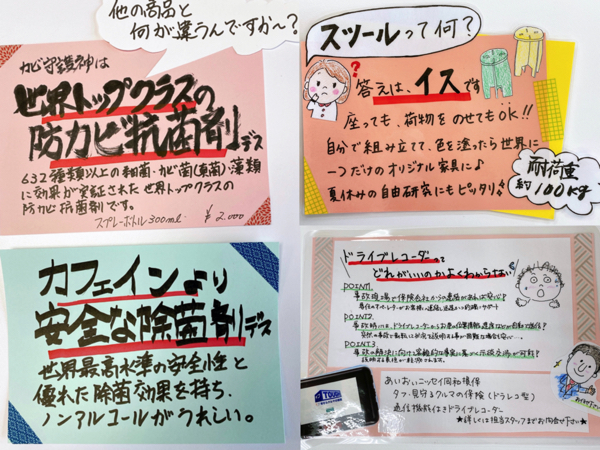 他の商品と
何が違うんですか～?
カビ守護神は
世界トップクラスの
防カビ抗菌剤デス
632種類以上の細菌・カビ菌(真菌)・藻類
に効果が実証された世界トップクラスの
防カビ抗菌剤です。
スプレーボトル300ml ¥2.000
スツールって何?
答えは、イスです
座っても、荷物をのせてもOK!!
自分で組み立て、色を塗ったら世界に
一つだけのオリジナル家具に♪
夏休みの自由研究にもピッタリ♪
耐荷重
約100kg
カフェインより
安全な除菌剤デス
世界最高水準の安全性と
優れた除菌効果を持ち、
ノンアルコールがうれしい。
ドライブレコーダーって
どれがいいのかよくわからない
POINT1.
事故現場で保険会社からの連絡があれば安心!
POINT2.
POINT3.
あいおいニッセイ同和損保
タフ・見守るクルマの保険(ドラレコ型)
通信機能付きドライブレコーダー
★詳しくは担当スタッフまでお問合せ下さい★